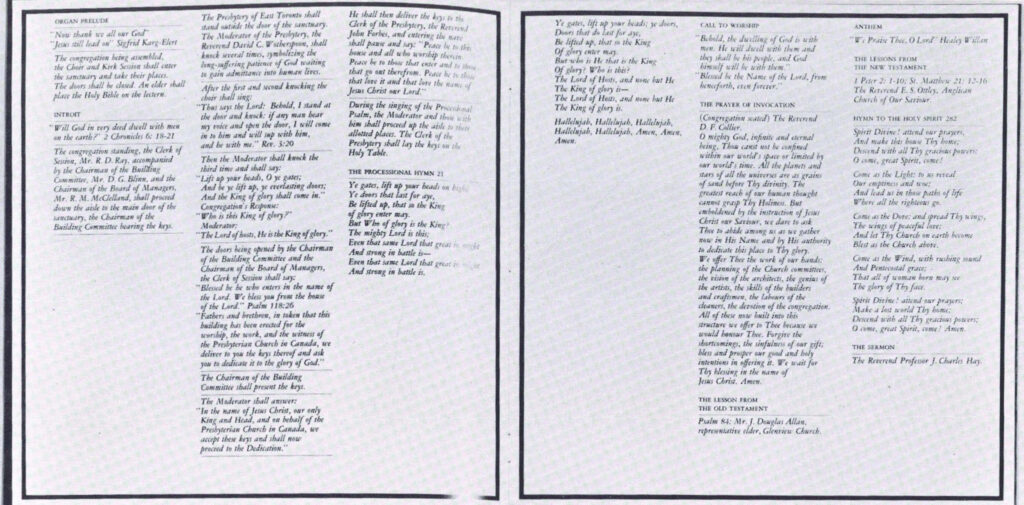 ORGAN PRELUDE
"Now thank we all our God"
"Jesus still lead on" Sigfrid Karg-Elert
The congregation being assembled,
the Choir and Kirk Session shall enter
the sanctuary and take their places.
The doors shall be closed. An elder shall
place the Holy Bible on the lectern.
INTROIT
"Will God in very deed dwell with men
on the earth?" 2 Chronicles 6: 18-21
The congregation standing, the Clerk of
Session, Mr. R. D. Ray, accompanied
by the Chairman of the Building
Committee, Mr. D. G. Blinn, and the
Chairman of the Board of Managers,
Mr. R. M. McClelland, shall proceed
down the aisle to the main door of the
sanctuary, the Chairman of the
Building Committee bearing the keys.
The Presbytery of East Toronto shall
stand outside the door of the sanctuary.
The Moderator of the Presbytery, the
Reverend David C. Wotherspoon, shall
knock several times, symbolizing the
long-suffering patience of God waiting
to gain admittance into human lives.
After the first and second knocking the
choir shall sing:
"Thus says the Lord: Behold, I stand at
the door and knock: if any man hear
my voice and open the door, I will come
in to him and will sup with him,
and he with me." Rev. 3:20
Then the Moderator shall knock the
third time and shall say:
"Lift up your heads, O ye gates;
And be ye lift up, ye everlasting doors;
And the King of glory shall come in."
Congregation's Response:
"Who is this King of glory?"
Moderator:
"The Lord of hosts, He is the King of glory."
The doors being opened by the Chairman
of the Building Committee and the
Chairman of the Board of Managers,
the Clerk of Session shall say:
"Blessed be he who enters in the name of
the Lord. We bless you from the house
of the Lord." Psalm 118:26
"Fathers and brethren, in token that this
building has been erected for the
worship, the work, and the witness of
the Presbyterian Church in Canada, we
deliver to you the keys thereof and ask
you to dedicate it to the glory of God."
The Chairman of the Building
Committee shall present the keys.
The Moderator shall answer:
"In the name of Jesus Christ, our only
King and Head, and on behalf of the
Presbyterian Church in Canada, we
accept these keys and shall now
proceed to the Dedication."
He shall then deliver the keys to the
Clerk of the Presbytery, the Reverend
John Forbes, and entering the nave
shall pause and say: "Peace be to this
house and all who worship therein.
Peace be to those that enter and to those
that go out therefrom. Peace be to those
that love it and that love the name of
Jesus Christ our Lord."
During the singing of the Processional
Psalm, the Moderator and those with
him shall proceed up the aisle to their
allotted places. The Clerk of the
Presbytery shall lay the keys on the
Holy Table.
THE PROCESSIONAL HYMN 21
Ye gates, lift up your heads on high
Ye doors that last for aye,
Be lifted up, that so the King
of glory enter may.
But Who of glory is the King?
The mighty Lord is this;
Even that same Lord that great in might
And strong in battle is—
Even that same Lord that great in might
And strong in battle is.
Ye gates, lift up your heads; ye doors,
Doors that do last for aye,
Be lifted up, that so the King
Of glory enter may.
But who is He that is the King
Of glory? Who is this?
The Lord of Hosts, and none but He
The King of glory is—
The Lord of Hosts, and none but He
The King of glory is.
Hallelujah, Hallelujah, Hallelujah,
Hallelujah, Hallelujah, Amen, Amen,
Amen.
CALL TO WORSHIP
"Behold, the dwelling of God is with
men. He will dwell with them and
they shall be his people, and God
himself will be with them."
"Blessed be the Name of the Lord, from
henceforth, even forever."
THE PRAYER OF INVOCATION
(Congregation seated) The Reverend
D. F. Collier.
O mighty God, infinite and eternal
being, Thou canst not be confined
within our world's space or limited by
our world's time. All the planets and
stars of all the universe are as grains
of sand before Thy divinity. The
greatest reach of our human thought
cannot grasp Thy Holiness. But
emboldened by the instruction of Jesus
Christ our Saviour, we dare to ask
Thee to abide among us as we gather
now in His Name and by His authority
to dedicate this place to Thy glory.
We offer Thee the work of our hands:
the planning of the Church committees,
the vision of the architects, the genius of
the artists, the skills of the builders
and craftsmen, the labours of the
cleaners, the devotion of the congregation.
All of these now built into this
structure we offer to Thee because we
would honour Thee. Forgive the
shortcomings, the sinfulness of our gift;
bless and prosper our good and holy
intentions in offering it. We wait for
Thy blessing in the name of
Jesus Christ. Amen.
THE LESSON FROM
THE OLD TESTAMENT
Psalm 84; Mr. J. Douglas Allan,
representative elder, Glenview Church.
ANTHEM
"We Praise Thee, O Lord" Healey Willan
THE LESSONS FROM
THE NEW TESTAMENT
1 Peter 2: 1-10; St. Matthew 21: 12-16
The Reverend E. S. Ottley, Anglican
Church of Our Saviour.
HYMN TO THE HOLY SPIRIT 282
Spirit Divine! attend our prayers,
And make this house Thy home;
Descend with all Thy gracious powers:
O come, great Spirit, come!
Come as the Light: to us reveal
Our emptiness and woe;
And lead us in those paths of life
Where all the righteous go.
Come as the Dove: and spread Thy wings,
The wings of peaceful love;
And let Thy Church on earth become
Blest as the Church above.
Come as the Wind, with rushing sound
And Pentecostal grace;
That all of woman born may see
The glory of Thy face.
Spirit Divine! attend our prayers;
Make a lost world Thy home;
Descend with all Thy gracious powers;
O come, great Spirit, come! Amen.
THE SERMON
The Reverend Professor J. Charles Hay.